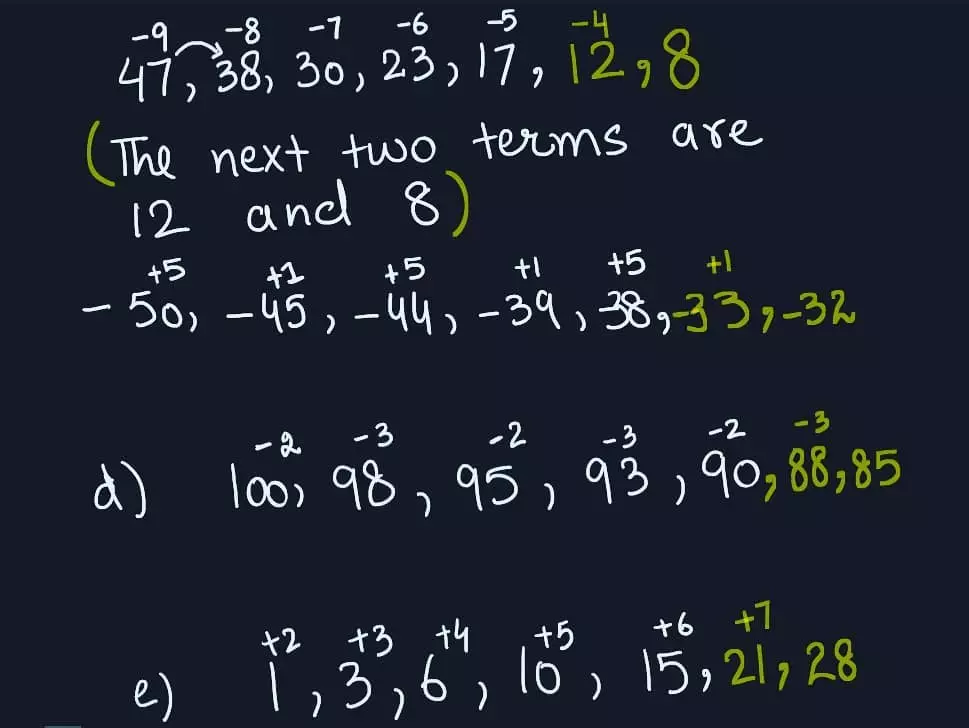 -9 -8 -7 -6 -5 -4
47, 38, 30, 23, 17, 12, 8
(The next two terms are
12 and 8)
+5 +1 +5 +1 +5 +1
-50, -45, -44, -39, -38, -33, -32
-2 -3 -2 -3 -2 -3
d) 100, 98, 95, 93, 90, 88, 85
+2 +3 +4 +5 +6 +7
e) 1, 3, 6, 10, 15, 21, 28